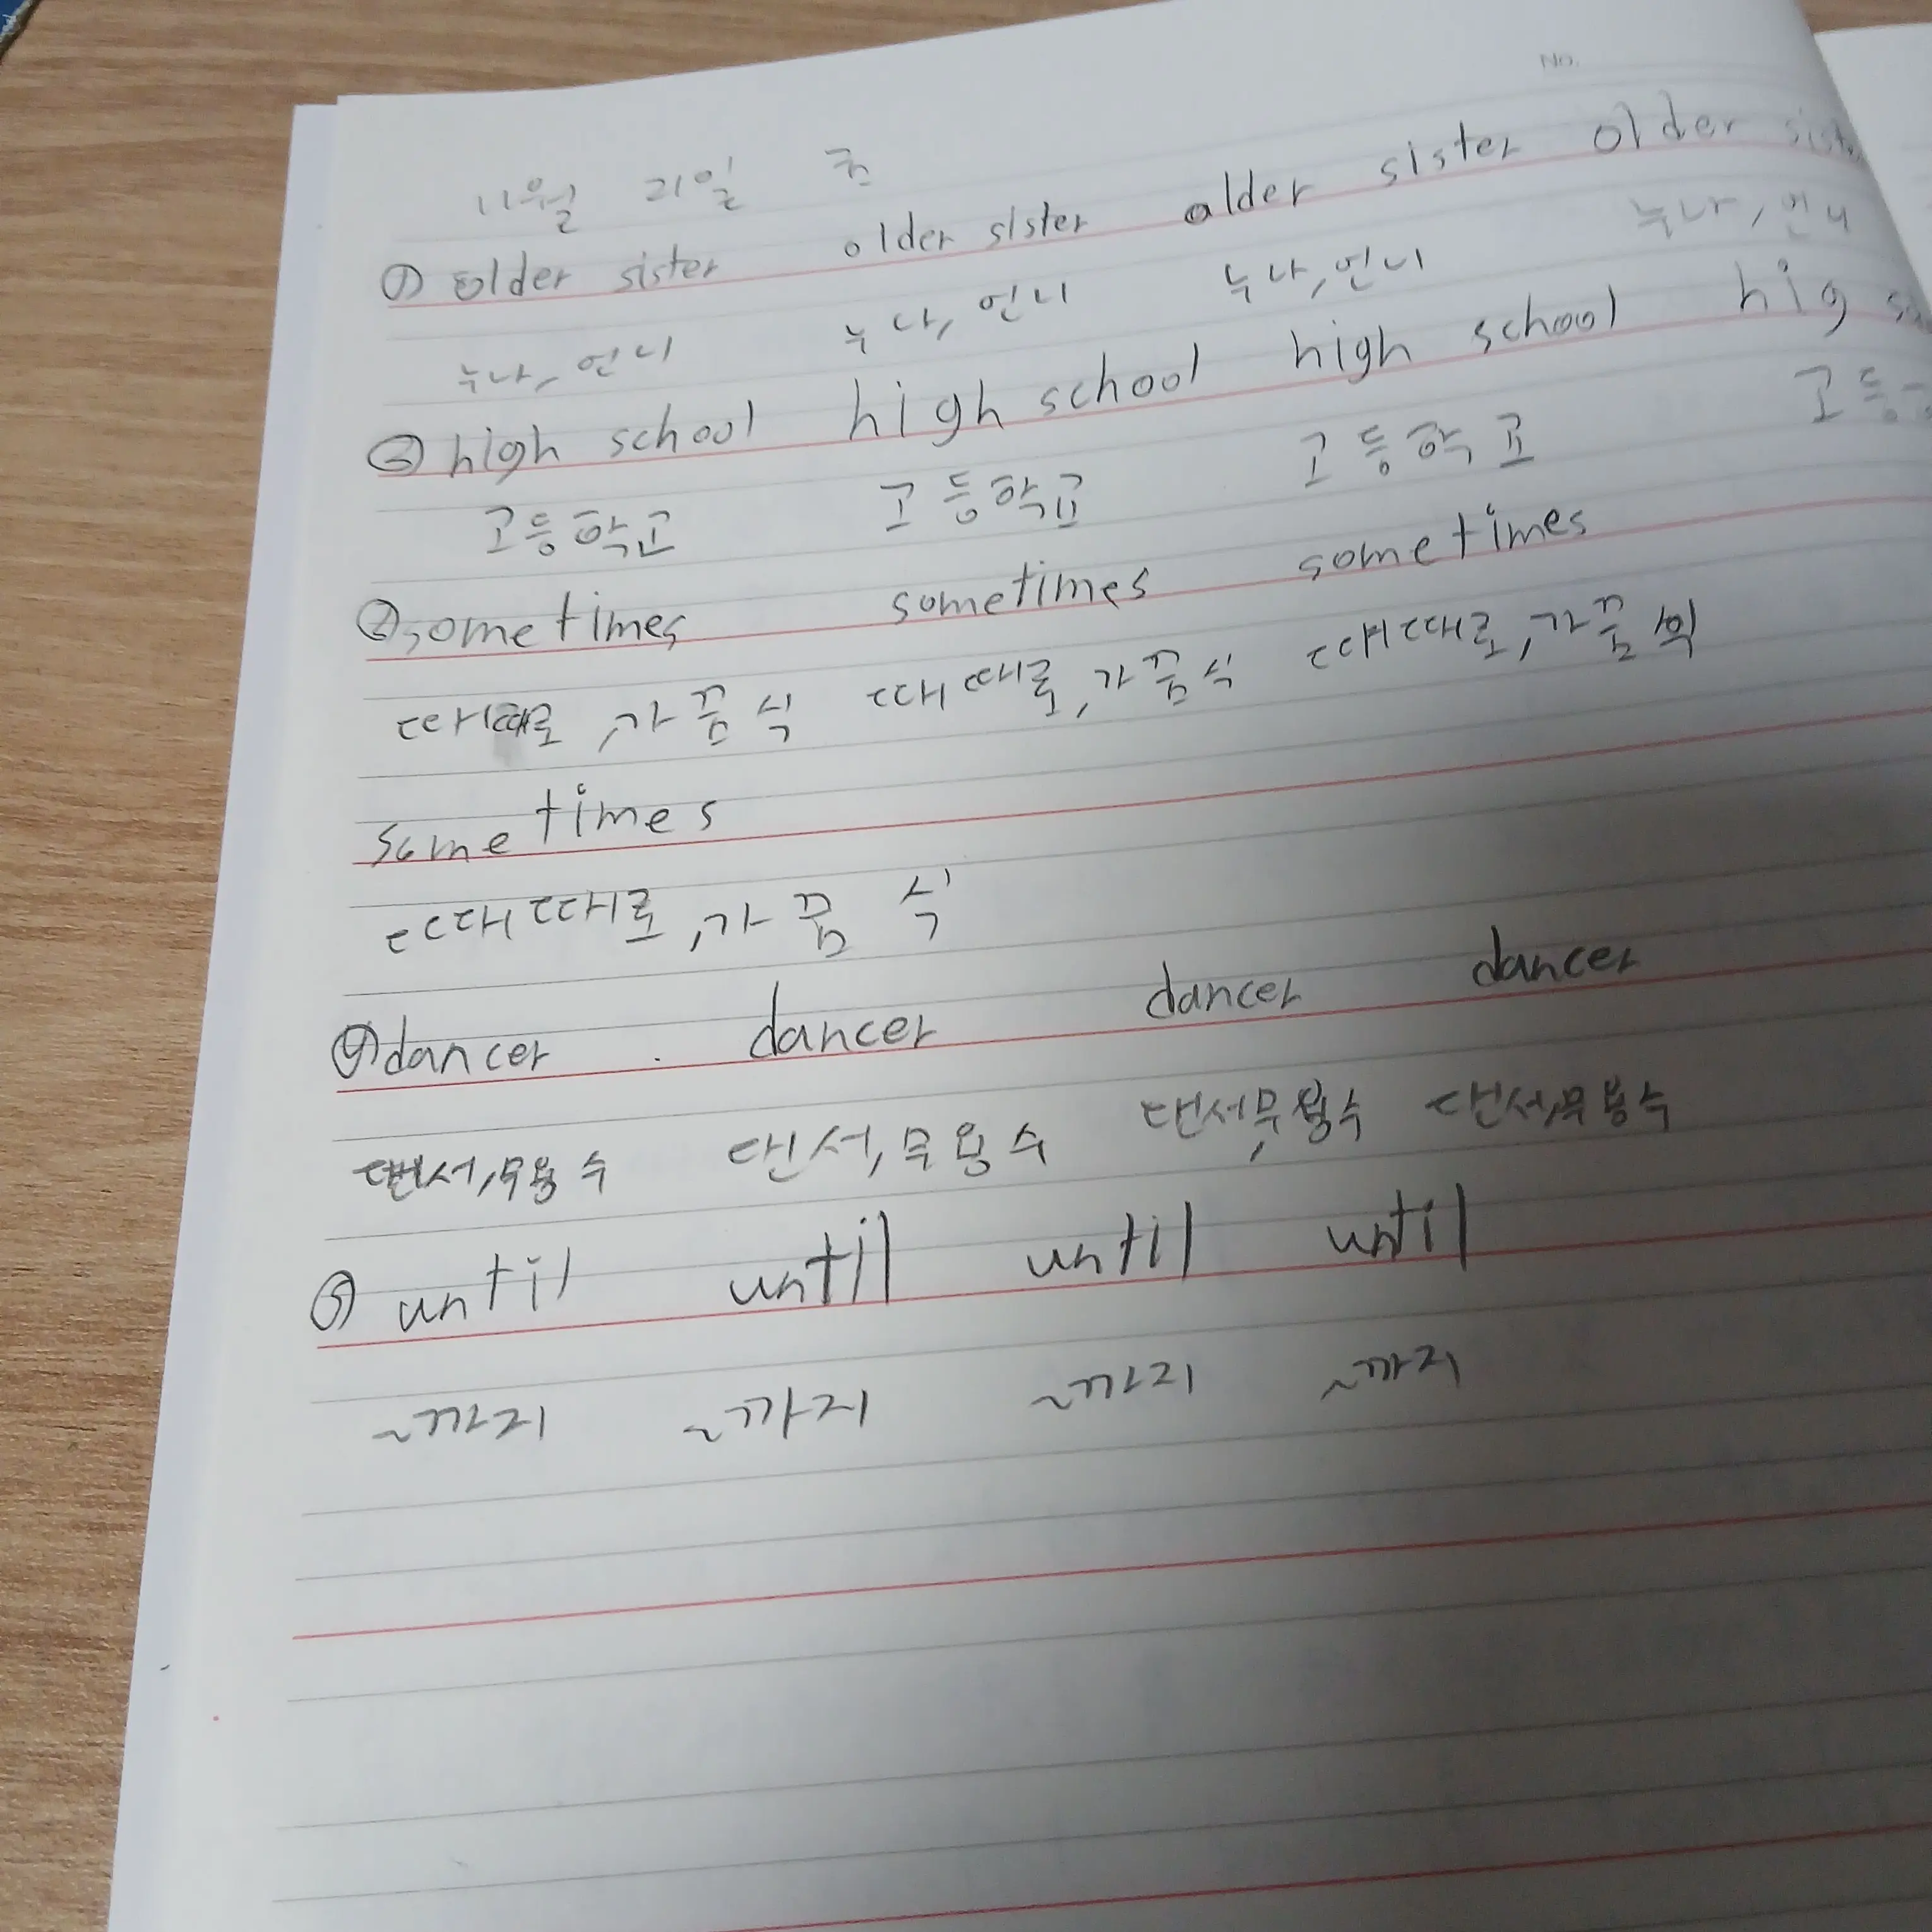 No.
11월 21일
① older sister older sister older sister older
누나, 언니 누나, 언니 누나, 언니 누나, 언니
high school high school high school hig
고등학교 고등학교 고등학교 고등
sometimes sometimes sometimes
때때로, 가끔 식 때때로, 가끔 식 때때로, 가끔
sometimes
때때로, 가끔 식
④ dancer dancer dancer dancer
댄서, 무용수 댄서, 무용수 댄서, 무용수 댄서, 무용수
⑤ until until until until
~까지 ~까지 ~까지 ~까지